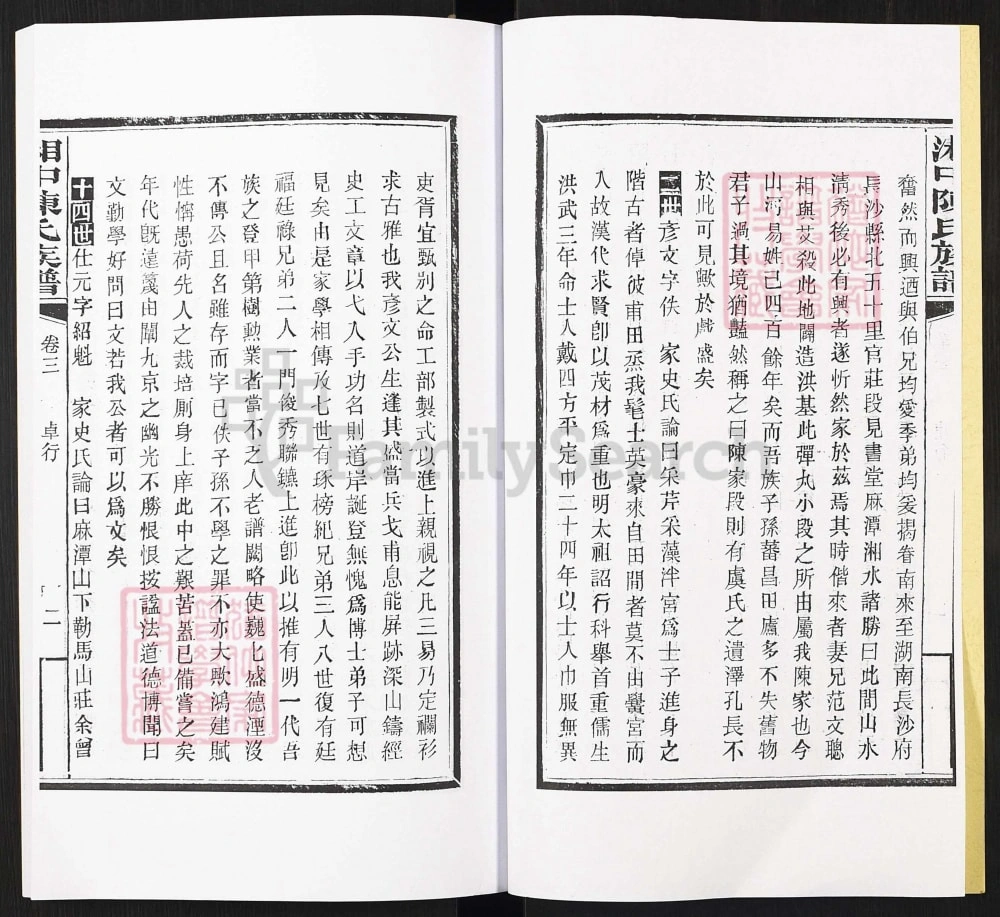 湘中陳氏族譜
奮然而興迺與伯兄均愛季弟均爰揭眷南來至湖南長沙府
長沙縣北五十里官莊段見書堂麻潭湘水諸勝曰此間山水
清秀後必有興者遂忻然家於茲焉其時偕來者妻兄范文聰
相與艾殺此地闢造洪基此彈丸小段之所由屬我陳家也今
山河易姓已四百餘年矣而吾族子孫蕃昌田廬多不失舊物
君子過其境猶豔然稱之曰陳家段則有虞氏之遺澤孔長不
於此可見歟於戲盛矣
彥文字佚 家史氏論曰采芹采藻泮宮爲士子進身之
階古者倬彼甫田烝我髦士英豪來自田間者莫不由黌宮而
入故漢代求賢卽以茂材爲重也明太祖詔行科舉首重儒生
洪武三年命士人戴四方平定巾二十四年以士人巾服無異
吏胥宜甄別之命工部製式以進上親視之凡三易乃定襴衫
求古雅也我彥文公生逢其盛當兵戈甫息能屏跡深山鑄經
史工文章以弋人手功名則道岸誕登無愧爲博士弟子可想
見矣由是家學相傳及七世有琢榜紀兄弟三人八世復有廷
福廷祿兄弟二人一門俊秀聯鑣上進卽此以推有明一代吾
族之登甲第樹勳業者當不乏人老譜闕略使巍化盛德湮沒
不傳公且名雖存而字已佚子孫不學之罪不亦大歟鴻建賦
性懈愚荷先人之栽培厠身上庠此中之艱苦蓋已備嘗之矣
年代旣遠簒由闡九京之幽光不勝恨恨按謚法道德博聞曰
文勤學好問曰文若我公者可以爲文矣
十四世仕元字紹魁 家史氏論曰麻潭山下勒馬山莊余曾
湘中陳氏族譜 卷三 卓行 二
FamilySearch